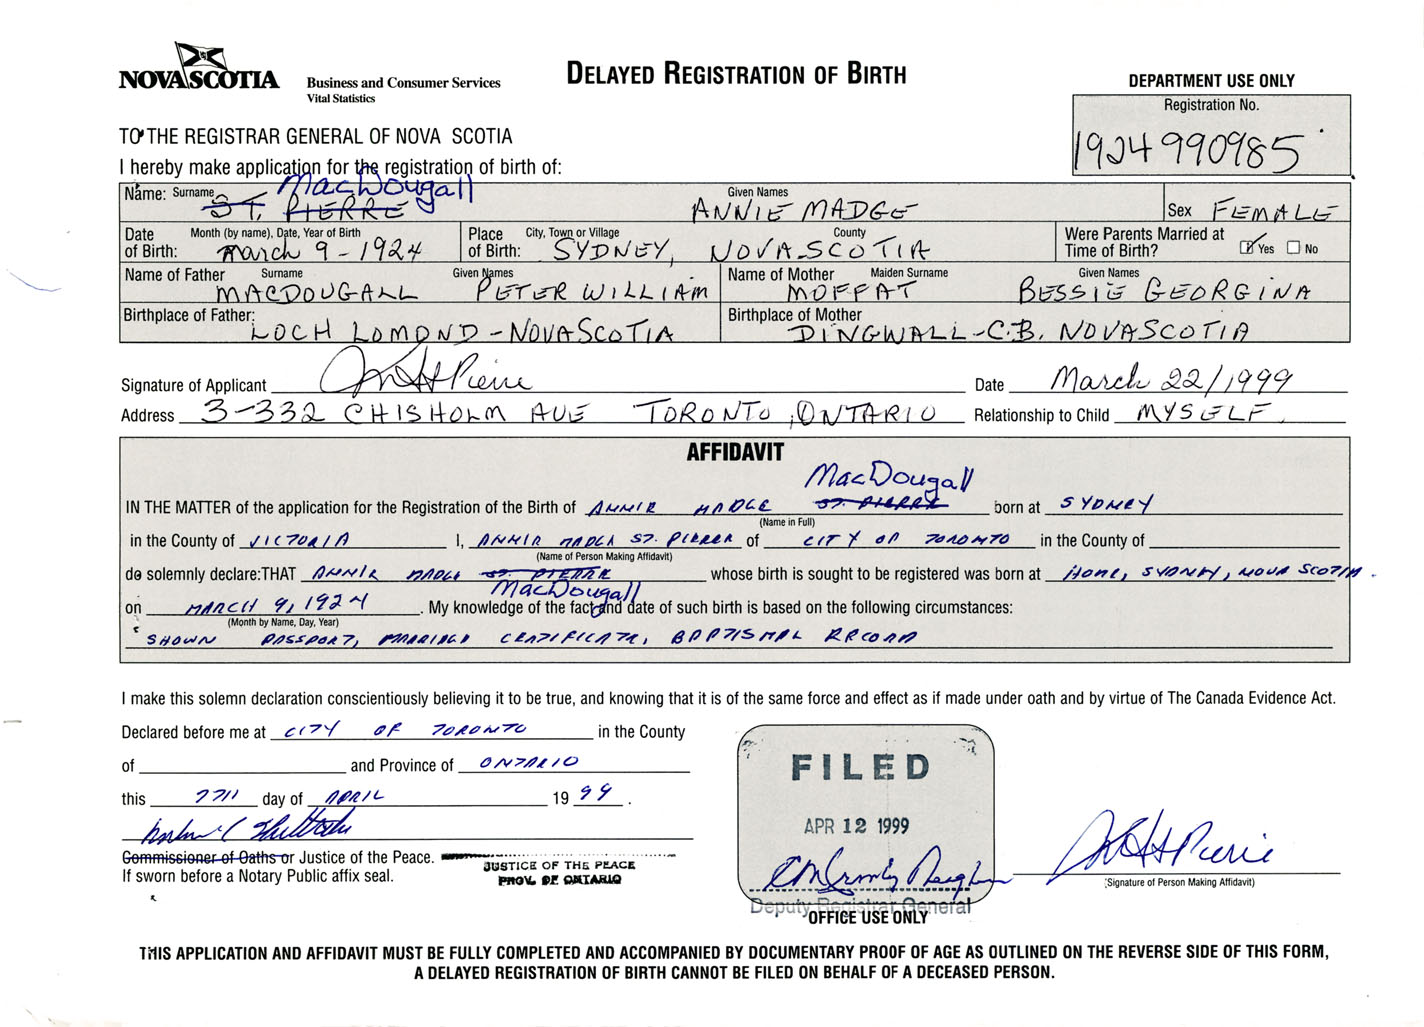 NOVA SCOTIA
Business and Consumer Services
Vital Statistics
DELAYED REGISTRATION OF BIRTH
DEPARTMENT USE ONLY
Registration No.
1924 990985
TO THE REGISTRAR GENERAL OF NOVA SCOTIA
I hereby make application for the registration of birth of:
Name: Surname ST. PIERRE MacDougall Given Names ANNIE MADGE Sex FEMALE
Date of Birth: Month (by name), Date, Year of Birth March 9 - 1924 Place of Birth: City, Town or Village SYDNEY, County NOVA SCOTIA Were Parents Married at Time of Birth? Yes No
Name of Father Surname MACDOUGALL Given Names PETER WILLIAM Name of Mother Maiden Surname MOFFAT Given Names BESSIE GEORGINA
Birthplace of Father: LOCH LOMOND - NOVA SCOTIA Birthplace of Mother DINGWALL - C.B. NOVA SCOTIA
Signature of Applicant St Pierre Date March 22/1999
Address 3-332 CHISHOLM AVE TORONTO, ONTARIO Relationship to Child MYSELF
AFFIDAVIT
MacDougall
IN THE MATTER of the application for the Registration of the Birth of ANNIE MADGE ST. PIERRE born at SYDNEY
(Name in Full)
in the County of VICTORIA I, ANNIE MADGE ST. PIERRE of CITY OF TORONTO in the County of
(Name of Person Making Affidavit)
do solemnly declare: THAT ANNIE MADGE ST. PIERRE whose birth is sought to be registered was born at HOME, SYDNEY, NOVA SCOTIA.
MacDougall
on MARCH 9, 1924. My knowledge of the fact and date of such birth is based on the following circumstances:
(Month by Name, Day, Year)
SHOWN PASSPORT, MARRIAGE CERTIFICATE, BAPTISMAL RECORD
I make this solemn declaration conscientiously believing it to be true, and knowing that it is of the same force and effect as if made under oath and by virtue of The Canada Evidence Act.
Declared before me at CITY OF TORONTO in the County
of and Province of ONTARIO
this 7TH day of APRIL 1999.
Commissioner of Oaths or Justice of the Peace.
If sworn before a Notary Public affix seal.
JUSTICE OF THE PEACE
PROV. OF ONTARIO
FILED
APR 12 1999
Deputy Registrar General
OFFICE USE ONLY
St Pierre
(Signature of Person Making Affidavit)
THIS APPLICATION AND AFFIDAVIT MUST BE FULLY COMPLETED AND ACCOMPANIED BY DOCUMENTARY PROOF OF AGE AS OUTLINED ON THE REVERSE SIDE OF THIS FORM,
A DELAYED REGISTRATION OF BIRTH CANNOT BE FILED ON BEHALF OF A DECEASED PERSON.